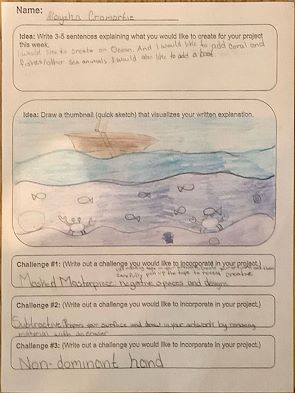 Name:
Idea: Write 3-5 sentences explaining what you would like to create for your project
this week.
I would like to create an Ocean. And I would like to add coral and
fishes/other sea animals I would also like to add a boat.
Idea: Draw a thumbnail (quick sketch) that visualizes your written explanation.
Challenge #1: (Write out a challenge you would like to incorporate in your project.)
carefully pull up the tape to reveal creative
Masked Masterpiece: negative spaces and designs
Challenge #2: (Write out a challenge you would like to incorporate in your project.)
Subtractive: your surface and draw in your artwork by removing
material with an eraser
Challenge #3: (Write out a challenge you would like to incorporate in your project.)
Non-dominant hand